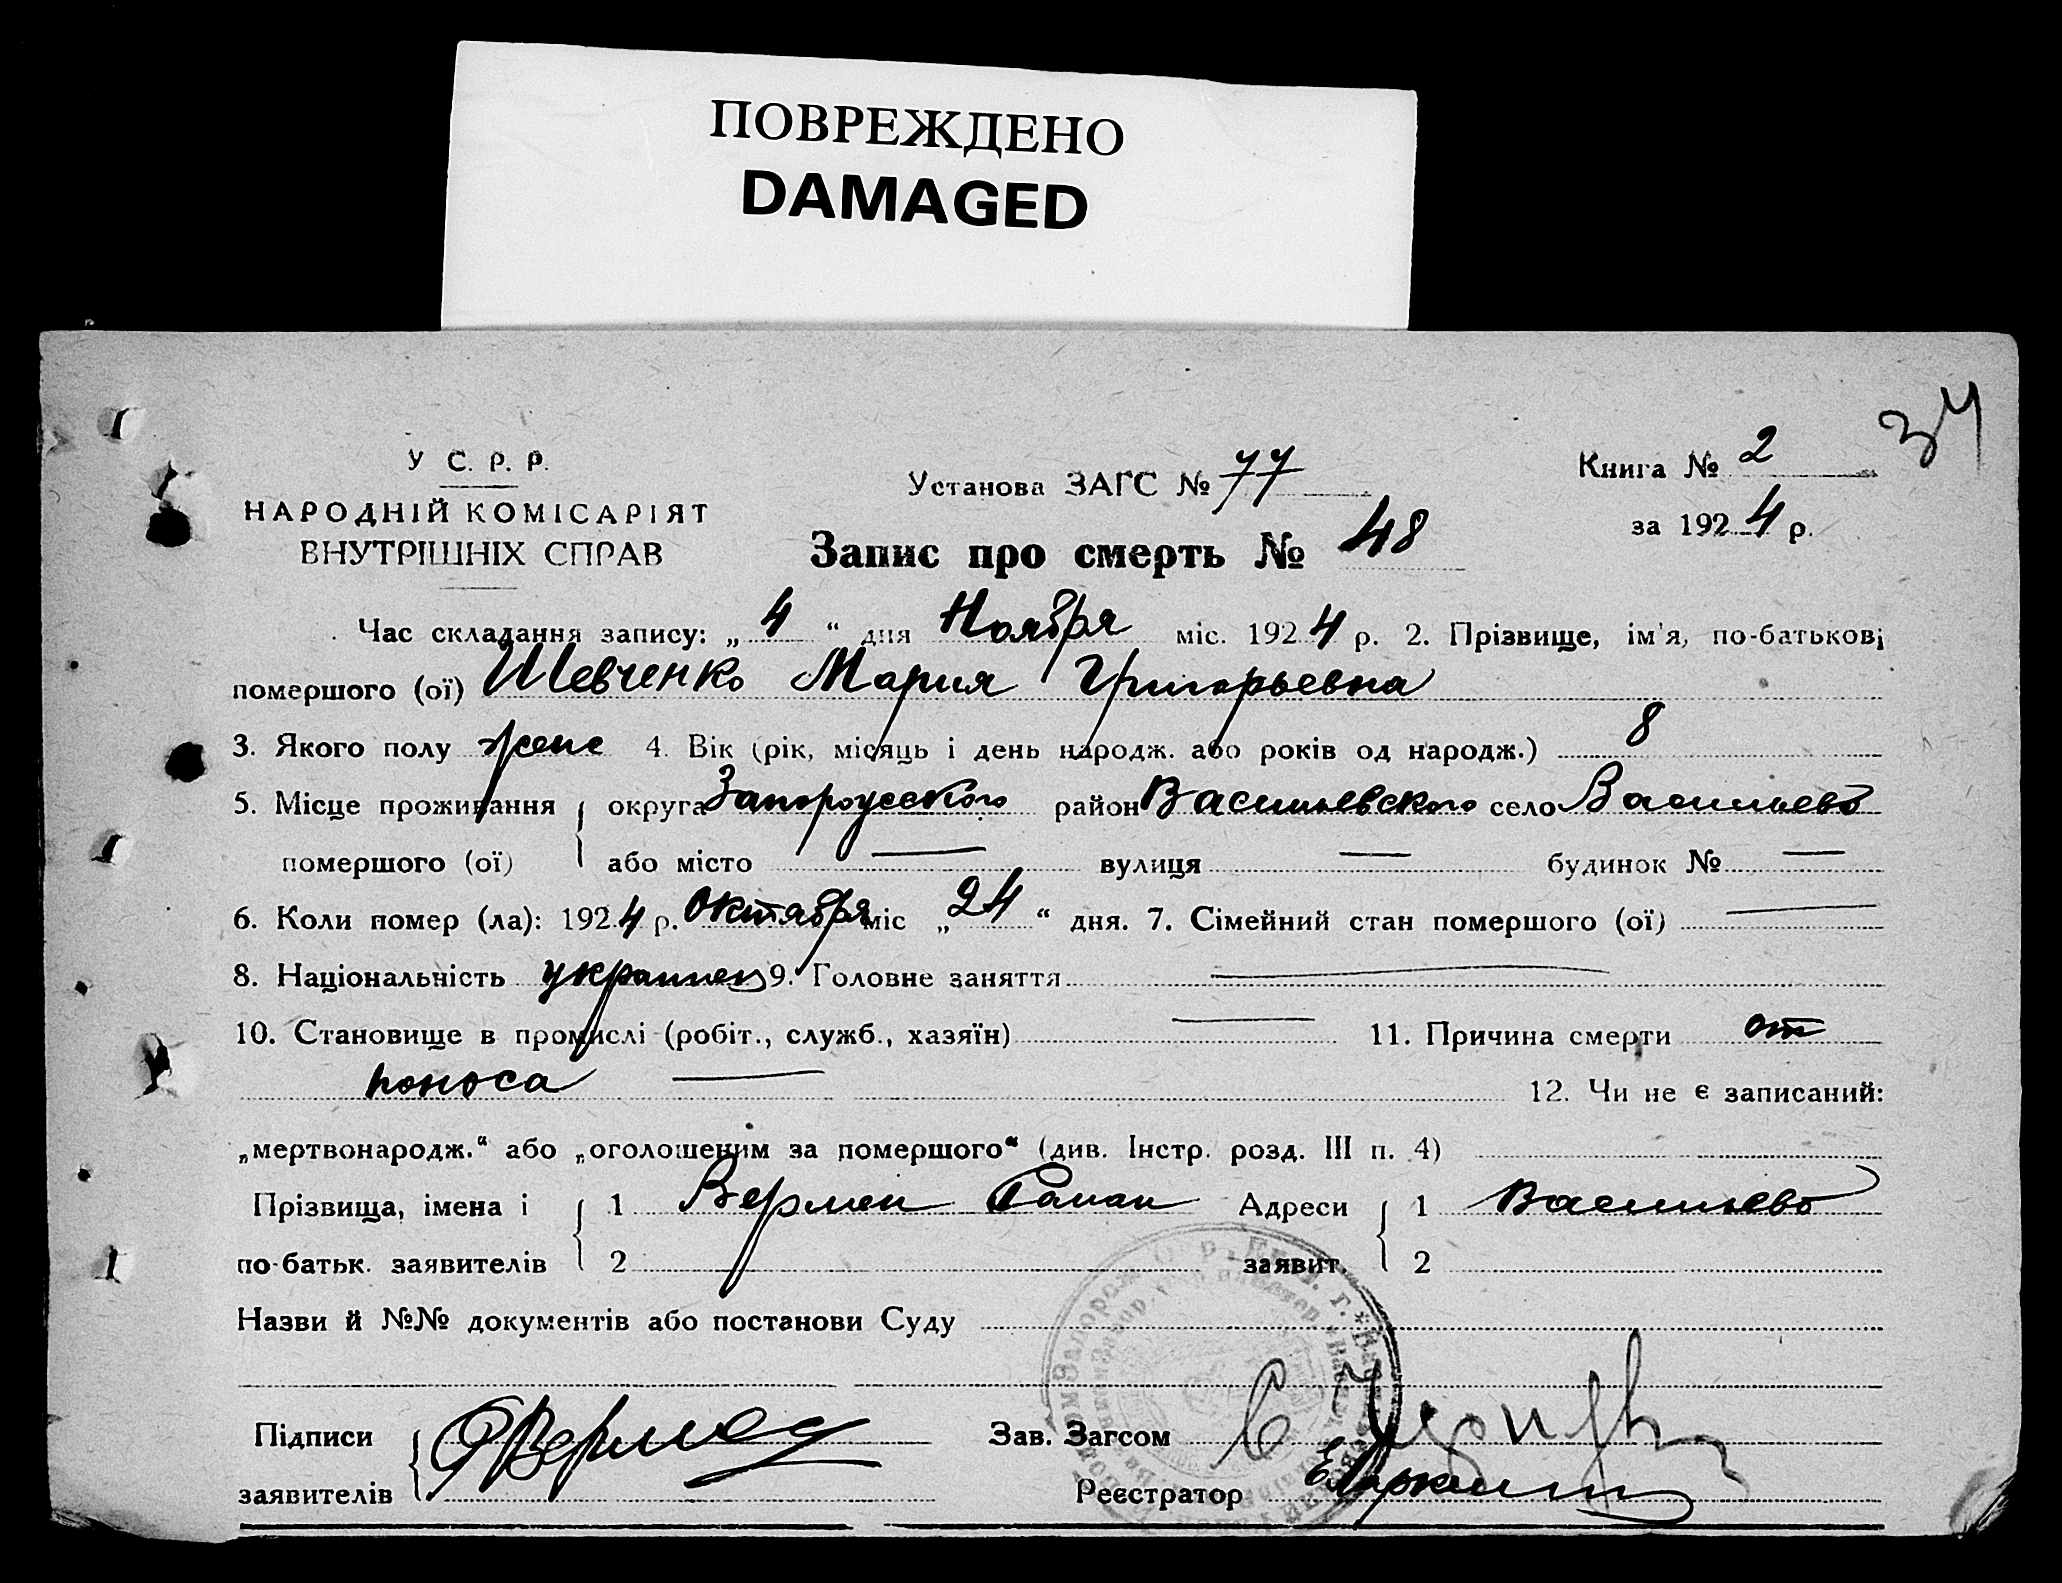 ПОВРЕЖДЕНО
DAMAGED
34
У С. Р. Р.
НАРОДНІЙ КОМІСАРІЯТ
ВНУТРІШНІХ СПРАВ
Установа ЗАГС № 77
Книга № 2
за 1924 р.
Запис про смерть № 48
Час складання запису: „ 4 “ дня Ноября міс. 1924 р. 2. Прізвище, ім'я, по-батькові
помершого (ої) Шевченко Мария Григорьевна
3. Якого полу женс 4. Вік (рік, місяць і день народж. або років од народж.) 8
5. Місце проживання округа район Васильевского село Васильево
помершого (ої) або місто — вулиця — будинок № —
6. Коли помер (ла): 1924 р. Октября міс „ 24 “ дня. 7. Сімейний стан помершого (ої) —
8. Національність украинец 9. Головне заняття —
10. Становище в промислі (робіт., служб., хазяїн) — 11. Причина смерти от
поноса — 12. Чи не є записаний:
„мертвонародж.“ або „оголошеним за помершого“ (див. Інстр. розд. III п. 4)
Прізвища, імена і 1 Роман Адреси 1 Васильево
по-батьк. заявителів 2 заявит. 2
Назви й №№ документів або постанови Суду
Підписи
заявителів
Зав. Загсом
Реєстратор